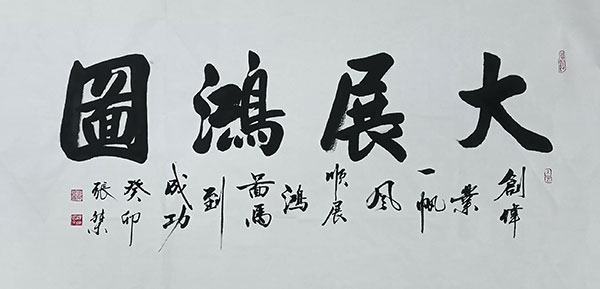 大展鴻圖
創偉
業
一帆
風
順展
鴻
啚馬
到
成功
癸卯
張